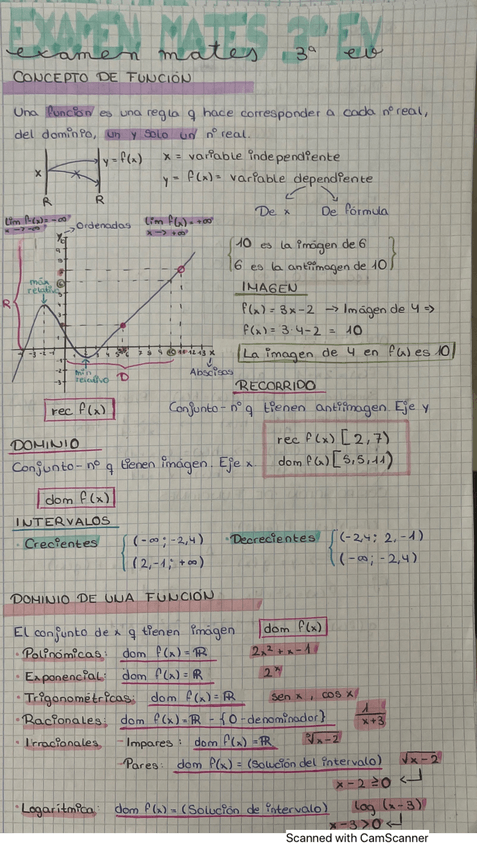 EXAMEN MATES 3ª EV
examen mates 3ª ev
CONCEPTO DE FUNCIÓN
Una función es una regla q hace corresponder a cada nº real,
del dominio, un y solo un nº real.
x y = f(x) x = variable independiente
y = f(x) = variable dependiente
R R
De x De fórmula
lim f(x) = -∞ x → -∞
Ordenadas
lim f(x) = +∞ x → +∞
10 es la imágen de 6
6 es la antiimagen de 10
máx relativo
mín relativo
R
D
Abscisas
IMAGEN
f(x) = 3x - 2 → Imágen de 4 =>
f(x) = 3·4 - 2 = 10
La imagen de 4 en f(x) es 10
RECORRIDO
rec f(x) Conjunto - nº q tienen antiimagen. Eje y
rec f(x) [2, 7)
dom f(x) [5,5, 11)
DOMINIO
Conjunto - nº q tienen imágen. Eje x.
dom f(x)
INTERVALOS
· Crecientes (-∞; -2,4)
(2,-1; +∞)
· Decrecientes (-2,4; 2,-1)
(-∞; -2,4)
DOMINIO DE UNA FUNCIÓN
El conjunto de x q tienen imágen dom f(x)
· Polinómicas: dom f(x) = ℝ 2x² + x - 1
· Exponencial: dom f(x) = ℝ 2ˣ
· Trigonométricas: dom f(x) = ℝ sen x, cos x
· Racionales: dom f(x) = ℝ - {0 - denominador} 1/x+3
· Irracionales - Impares: dom f(x) = ℝ ∛x-2
- Pares: dom f(x) = (solución del intervalo) √x-2
x - 2 ≥ 0
· Logarítmica: dom f(x) = (Solución de intervalo) log (x-3)
x - 3 > 0
Scanned with CamScanner